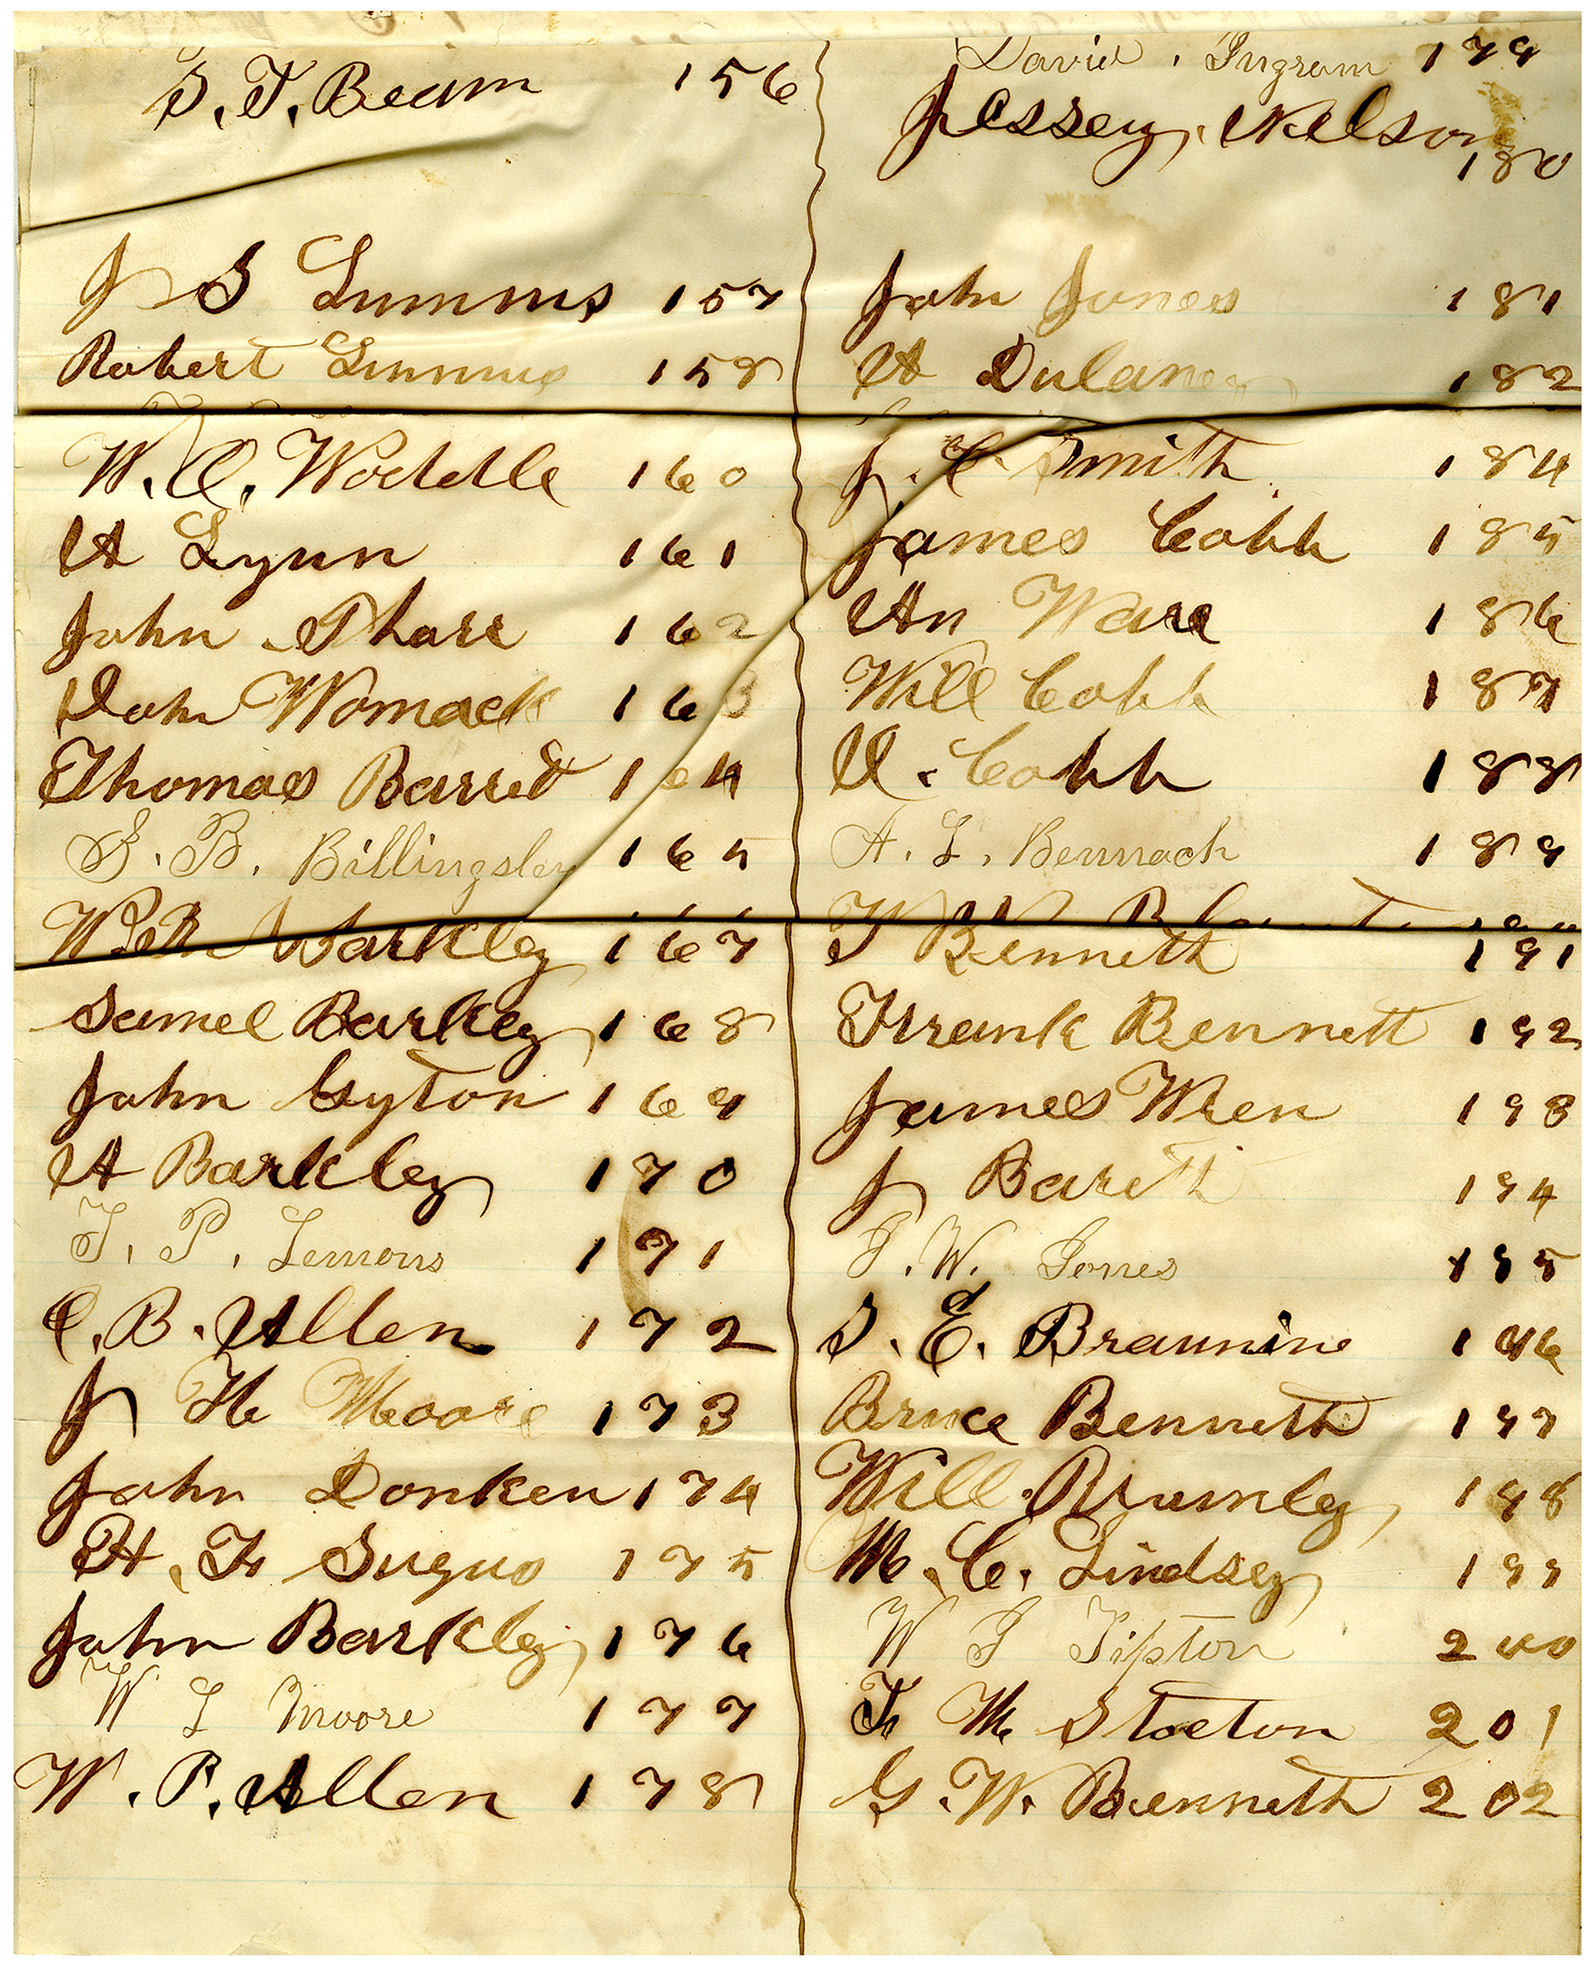 S. T. Beam 156
J S Lumms 157
Robert Lumms 158
W. C. Woddle 160
A Lynn 161
John Pharr 162
John Womack 163
Thomas Barret 164
G. B. Billingsley 165
Barkley 167
Samel Barkley 168
John Gyton 169
A Barkley 170
T. P. Lemons 171
C. B. Allen 172
J H Moore 173
John Donken 174
H. F. 175
John Barkley 176
W L Moore 177
W. P. Allen 178
David Ingram 179
Jessey Nelson
180
John Jones 181
A Dulaney 182
J. C. Smith 184
James Cobb 185
An Ware 186
Will Cobb 187
Cobb 188
A. L. Bennach 189
T Bennett 191
Frank Bennett 192
James Wren 193
J Barett 194
T. W. Jones 195
S. E. Braunine 196
Bruce Bennett 197
Will Brumley 198
M. C. Lindsey 199
W T Tipton 200
F M Stocton 201
G. W. Bennett 202